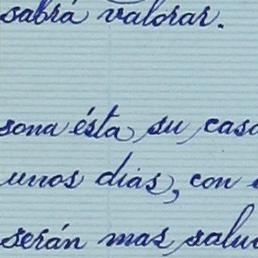 sabrá valorar.
sona ésta su casa
unos dias, con
serán mas salu